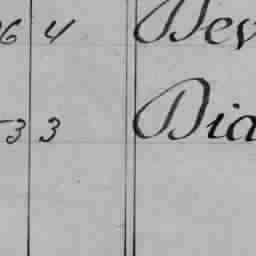 6 4 Dev
3 3 Dia